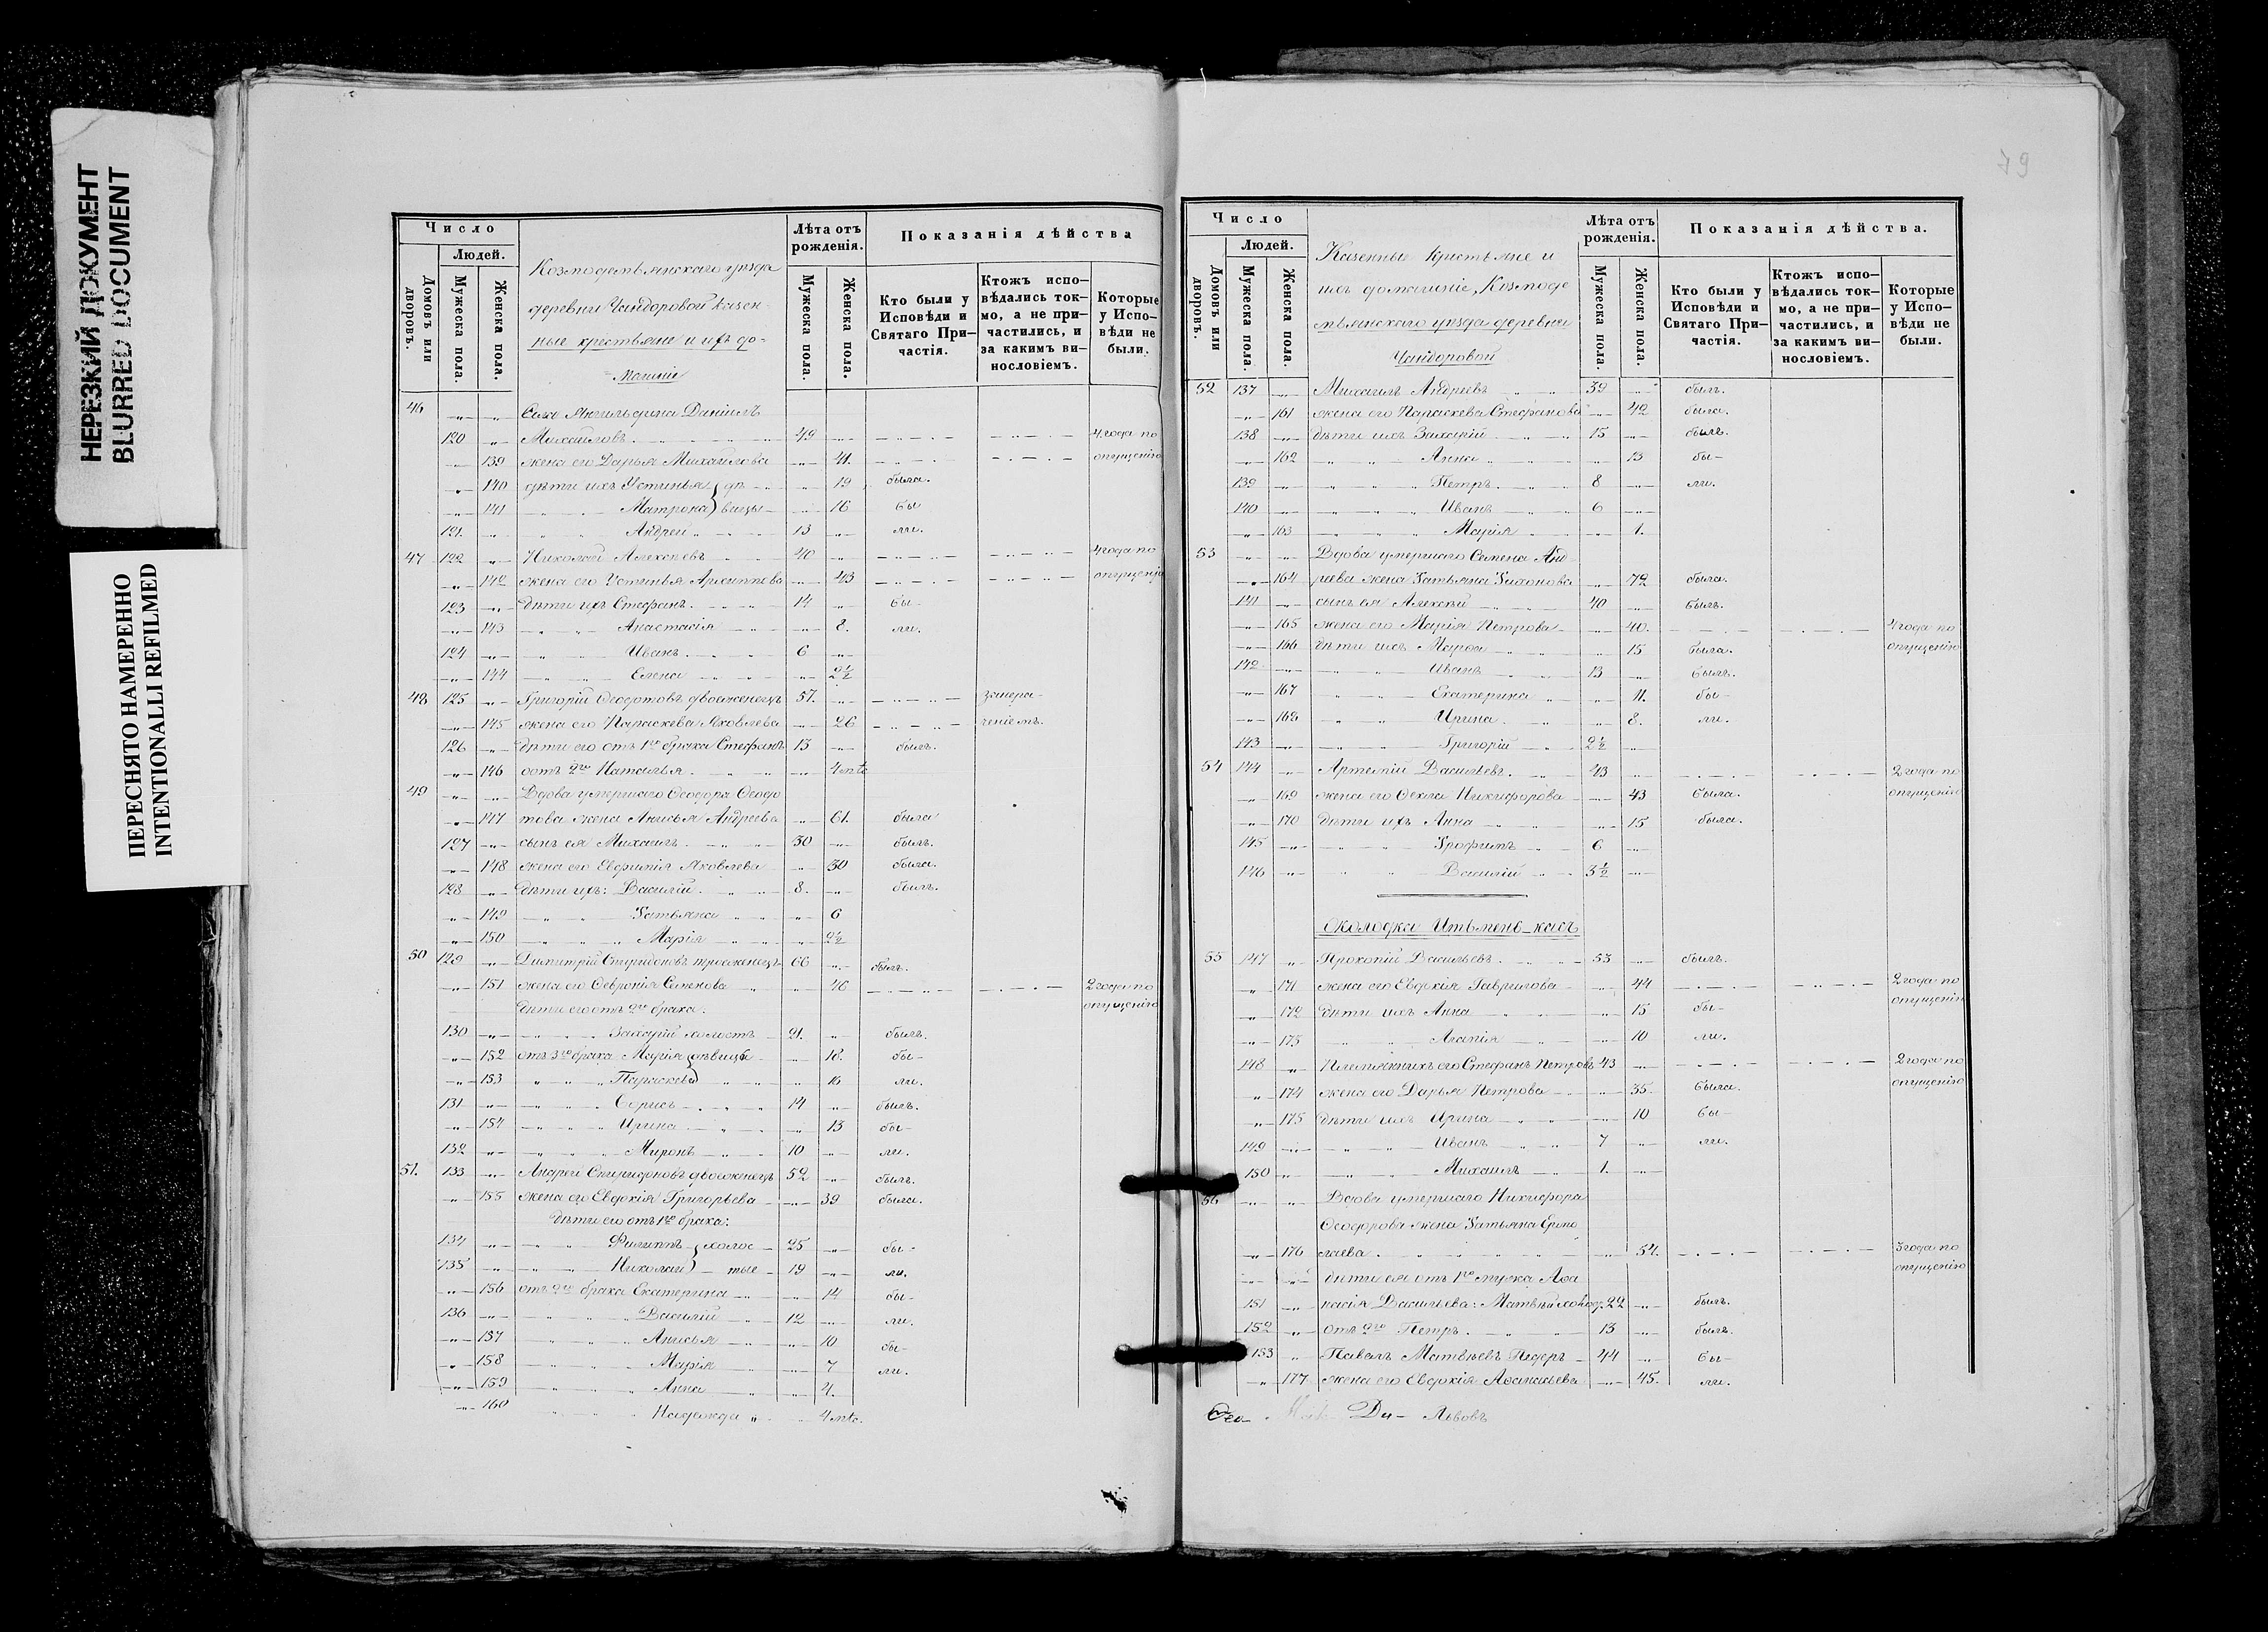 НЕРЕЗКИЙ ДОКУМЕНТ
BLURRED DOCUMENT
ПЕРЕСНЯТО НАМЕРЕННО
INTENTIONALLI REFILMED
Число
Людей.
Домовъ или дворовъ.
Мужеска пола.
Женска пола.
Козмодемьянскаго уѣзда
деревни Чандоровой казен-
ные крестьяне и ихъ до-
машніе
Лѣта отъ рожденія.
Мужеска пола.
Женска пола.
Показанія дѣйства
Кто были у Исповѣди и Святаго При-частія.
Ктожъ испо-вѣдались ток-мо, а не при-частились, и за какимъ ви-нословіемъ.
Которые у Испо-вѣди не были.
46 Даніилъ
120 Михайловъ 49 4 года по
139 жена его Дарья Михайлова 41. опущенію
140 дѣти ихъ Устинья дѣ- 19 была.
141 Матрона вицы 16 бы
121. Андрей 13 ли.
47 122 Николай Алексѣевъ 40 4 года по
142 жена его Устинья Архиппова 43 опущенію
123 дѣти ихъ Стефанъ 14 бы-
143 Анастасія 8. ли.
124 Иванъ 6
144 Елена 2½
48 125 Григорій Ѳеодотовъ двоеженецъ 57.
145 жена его Параскева Яковлева 26
126 дѣти его отъ 1го брака Стефанъ 13 былъ.
146 отъ 2го Наталья 4 мѣс
49 Вдова умершаго Ѳеодора Ѳеодо
147 това жена Анисья Андреева 61. была
127 сынъ ея Михаилъ 30 былъ.
148 жена его Евфимія Яковлева 30 была.
128 дѣти ихъ: Василій 8. былъ.
149 Татьяна 6
150 Марія 2½
50 129 Димитрій Спиридоновъ троеженецъ 66 былъ.
151 жена его Февронія Семенова 46 2 года по
дѣти его отъ 2го брака: опущенію
130 Захарій холостъ 21. былъ.
152 отъ 3го брака Марія дѣвицы 18. бы-
153 Параскева 16 ли.
131 Борисъ 14 былъ.
154 Ирина 13 бы-
132 Миронъ 10 ли.
51. 133 Андрей Спиридоновъ двоеженецъ 52 былъ.
155 жена его Евдокія Григорьева 39 была.
дѣти его отъ 1го брака:
134 Филиппъ холос- 25 бы-
135 Николай тые 19 ли.
156 отъ 2го брака Екатерина 14 бы-
136 Василій 12 ли.
157 Анисья 10 бы-
158 Марія 7 ли.
159 Анна 4.
160 Надежда 4 мѣс.
79
Число
Людей.
Домовъ или дворовъ.
Мужеска пола.
Женска пола.
Казенные крестьяне и
ихъ домашніе, Козмоде
мьянскаго уѣзда деревни
Чандоровой
Лѣта отъ рожденія.
Мужеска пола.
Женска пола.
Показанія дѣйства.
Кто были у Исповѣди и Святаго При-частія.
Ктожъ испо-вѣдались ток-мо, а не при-частились, и за какимъ ви-нословіемъ.
Которые у Испо-вѣди не были.
52 137 Михаилъ Андреевъ 39 былъ.
161 жена его Параскева Стефанова 42 была.
138 дѣти ихъ Захарій 15 былъ.
162 Анна 13 бы-
139 Петръ 8 ли.
140 Иванъ 6
163 Марія 1.
53 Вдова умершаго Семена Анд-
164 реева жена Татьяна Тихонова 72 была.
141 сынъ ея Алексѣй 40 былъ.
165 жена его Марія Петрова 40. 4 года по
166 дѣти ихъ Марфа 15 была. опущенію
142 Иванъ 13 былъ.
167 Екатерина 11. бы-
168 Ирина 8. ли.
143 Григорій 2½
54 144 Артемій Васильевъ 43 2 года по
169 жена его Ѳекла Никифорова 43 была. опущенію
170 дѣти ихъ Анна 15 была.
145 Трофимъ 6
146 Василій 3½
Околодка Итьмень-касъ
55 147 Прокопій Васильевъ 53 былъ.
171 жена его Евдокія Гаврилова 44 2 года по
172 дѣти ихъ Анна 15 бы- опущенію
173 Агапія 10 ли.
148 Племянникъ его Стефанъ Петровъ 43 2 года по
174 жена его Дарья Петрова 35 была. опущенію
175 дѣти ихъ Ирина 10 бы-
149 Иванъ 7 ли.
150 Михаилъ 1.
56 Вдова умершаго Никифора
Ѳеодорова жена Татьяна Ермо
176 лаева 54. 3 года по
дѣти ея отъ 1го мужа Аѳа опущенію
151 насія Васильева: Матвѣй 22 былъ.
152 отъ 2го Петръ 13 былъ.
153 Павелъ Матвѣевъ 44 бы-
177 жена его Евдокія Аѳанасьева 45. ли.
Ди- Львовъ